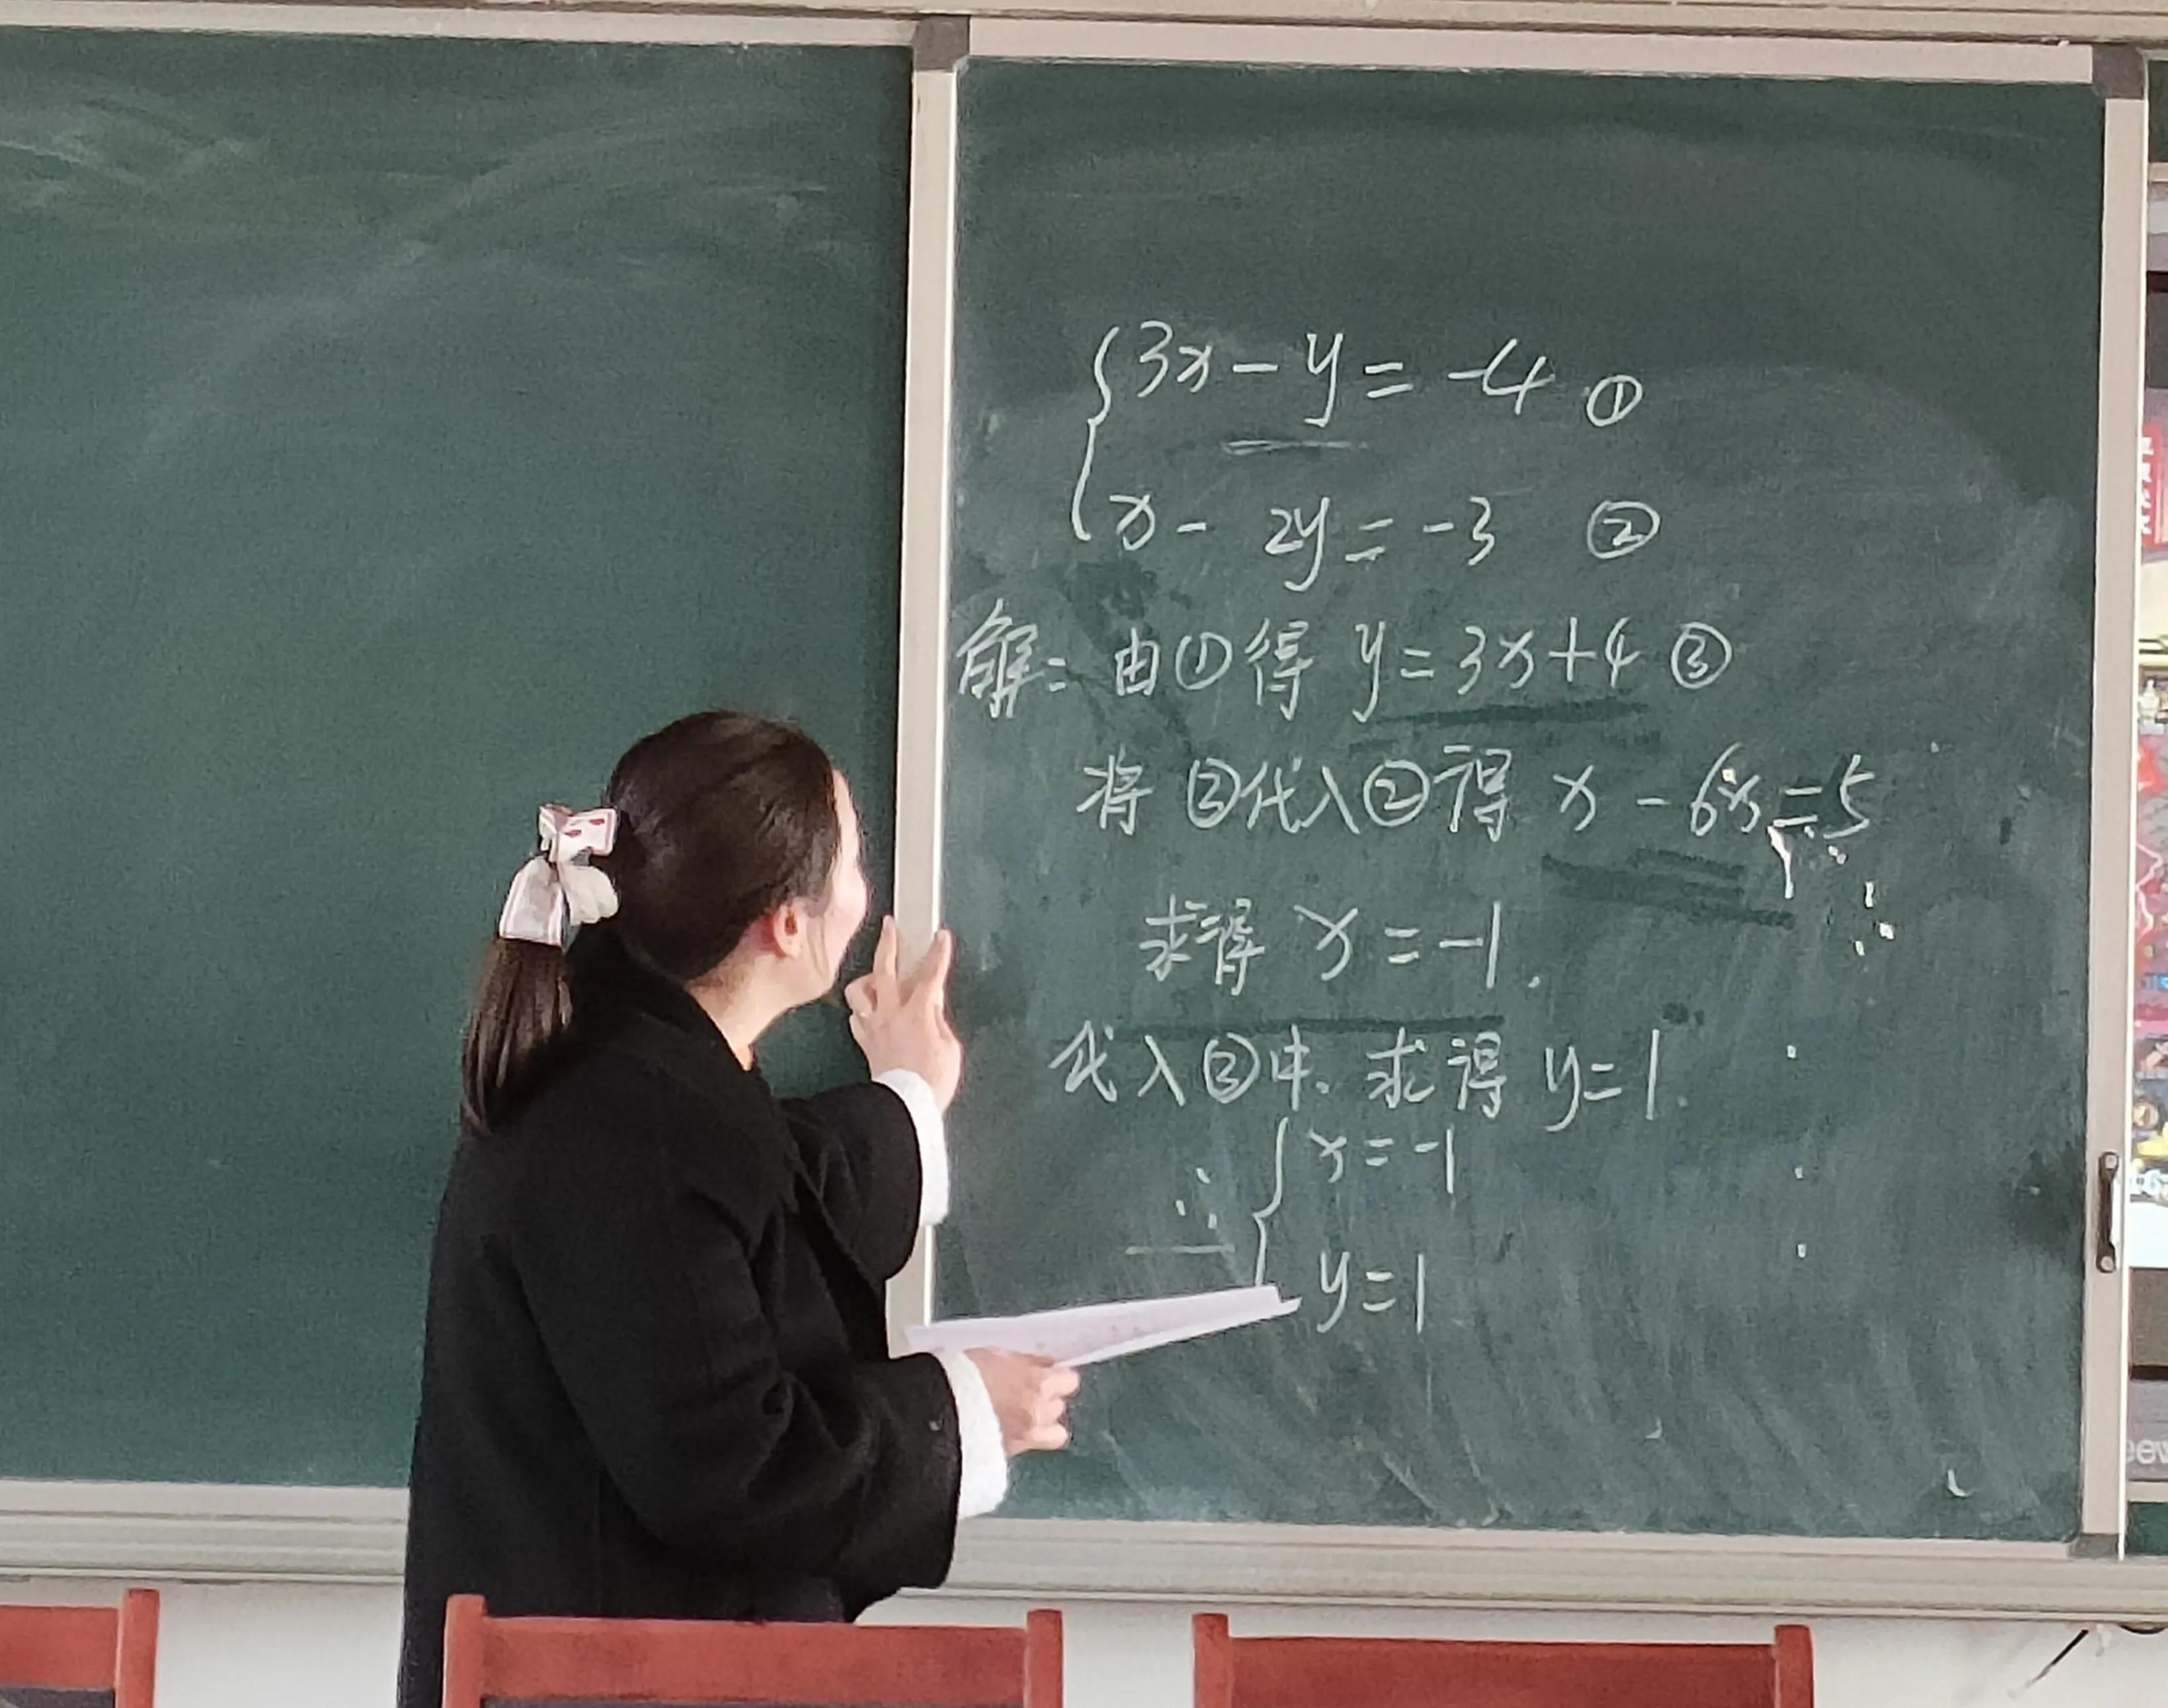 3x - y = -4 ①
x - 2y = -3 ②
解：由①得 y = 3x + 4 ③
将③代入②得 x - 6x = 5
求得 x = -1.
代入③中，求得 y = 1.
∴ x = -1
y = 1